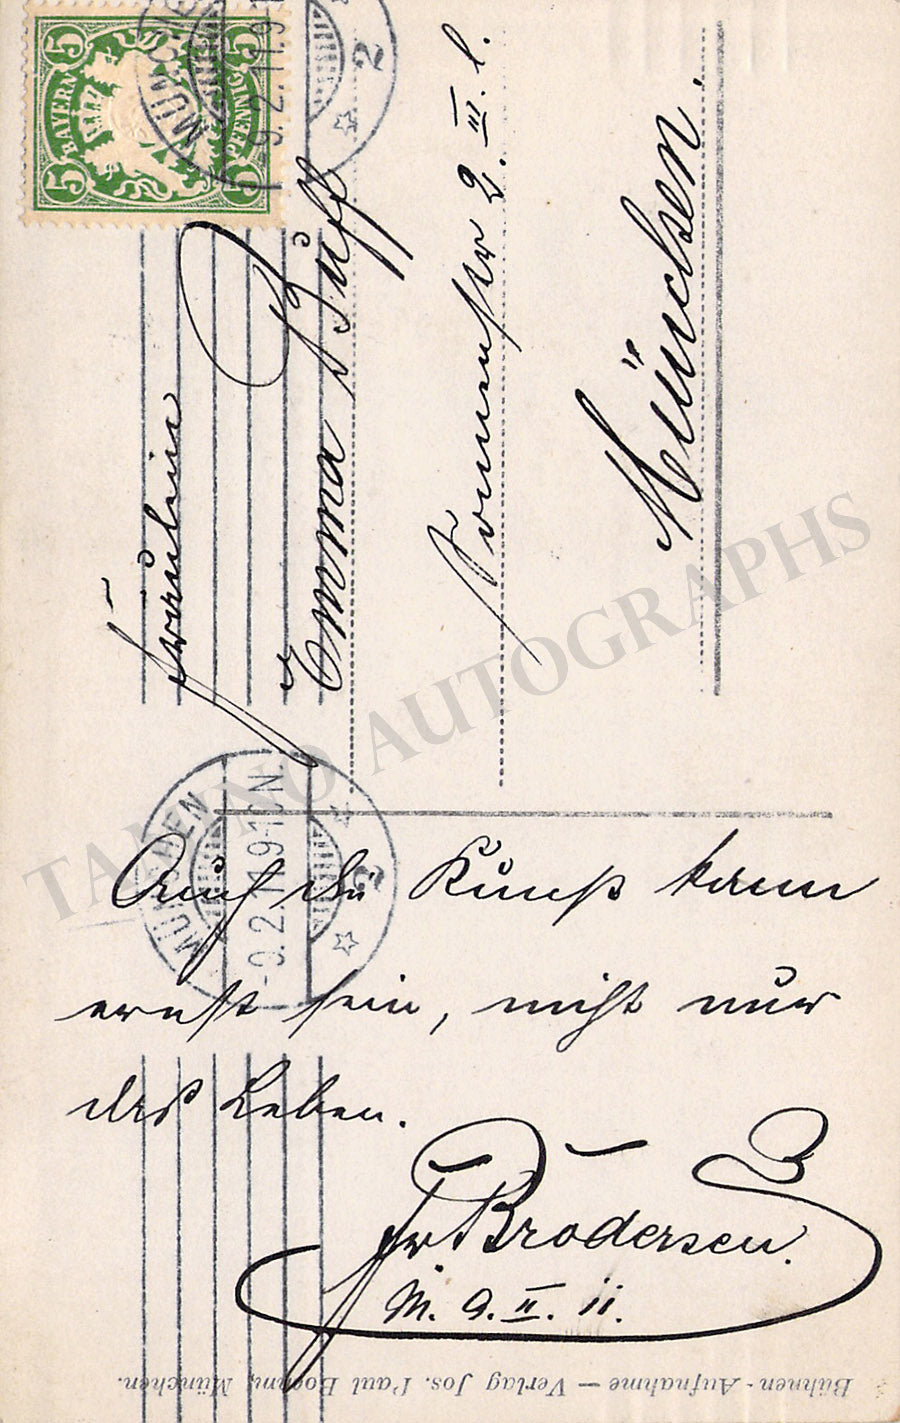 BAYERN
5 5 5 5
PFENNIG
MÜNCHEN
9.2.11.9-10
2
Fräulein
Emma Büff
Sonnenstr 2. III. l.
München.
MÜNCHEN
-9.2.11.9-10N
2
Auch die Kunst kann
ernst sein, nicht nur
das Leben.
Fr Brodersen.
M. 9. II. 11.
Bühnen-Aufnahme — Verlag Jos. Paul Böhm, München.
TAMINO AUTOGRAPHS